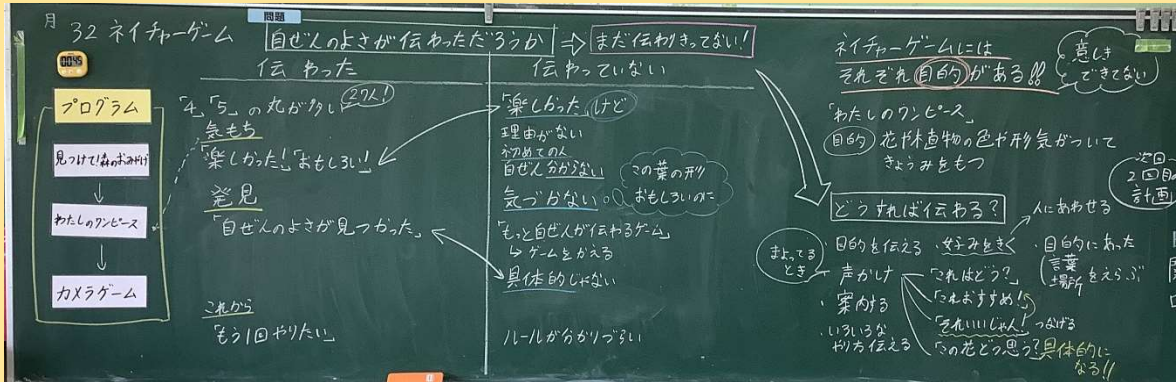 月
32 ネイチャーゲーム
問題
自ぜんのよさが伝わっただろうか ⇒ まだ伝わりきってない!
00:45
プログラム
見つけて!森のおみやげ
↓
わたしのワンピース
↓
カメラゲーム
伝わった
「4」「5」の丸が多い 27人!
気もち
「楽しかった!」「おもしろい!」
発見
「自ぜんのよさが見つかった」
これから
「もう1回やりたい」
伝わっていない
「楽しかった」けど
理由がない
初めての人
自ぜん分からない
気づかない
この葉の形
おもしろいのに
「もっと自ぜんが伝わるゲーム」
↳ ゲームをかえる
具体的じゃない
ルールが分かりづらい
ネイチャーゲームには
それぞれ目的がある!!
意しき
できてない
「わたしのワンピース」
目的 花や植物の色や形気がついて
きょうみをもつ
次回
2回目の
計画
どうすれば伝わる?
人にあわせる
・目的を伝える
まよってる
とき
声かけ
・案内する
・いろいろな
やり方伝える
・好みをきく
「これはどう?」
「これおすすめ!」
「それいいじゃん!」つなげる
「この花どう思う?」具体的に
なる!!
・目的にあった
言葉
場所 をえらぶ